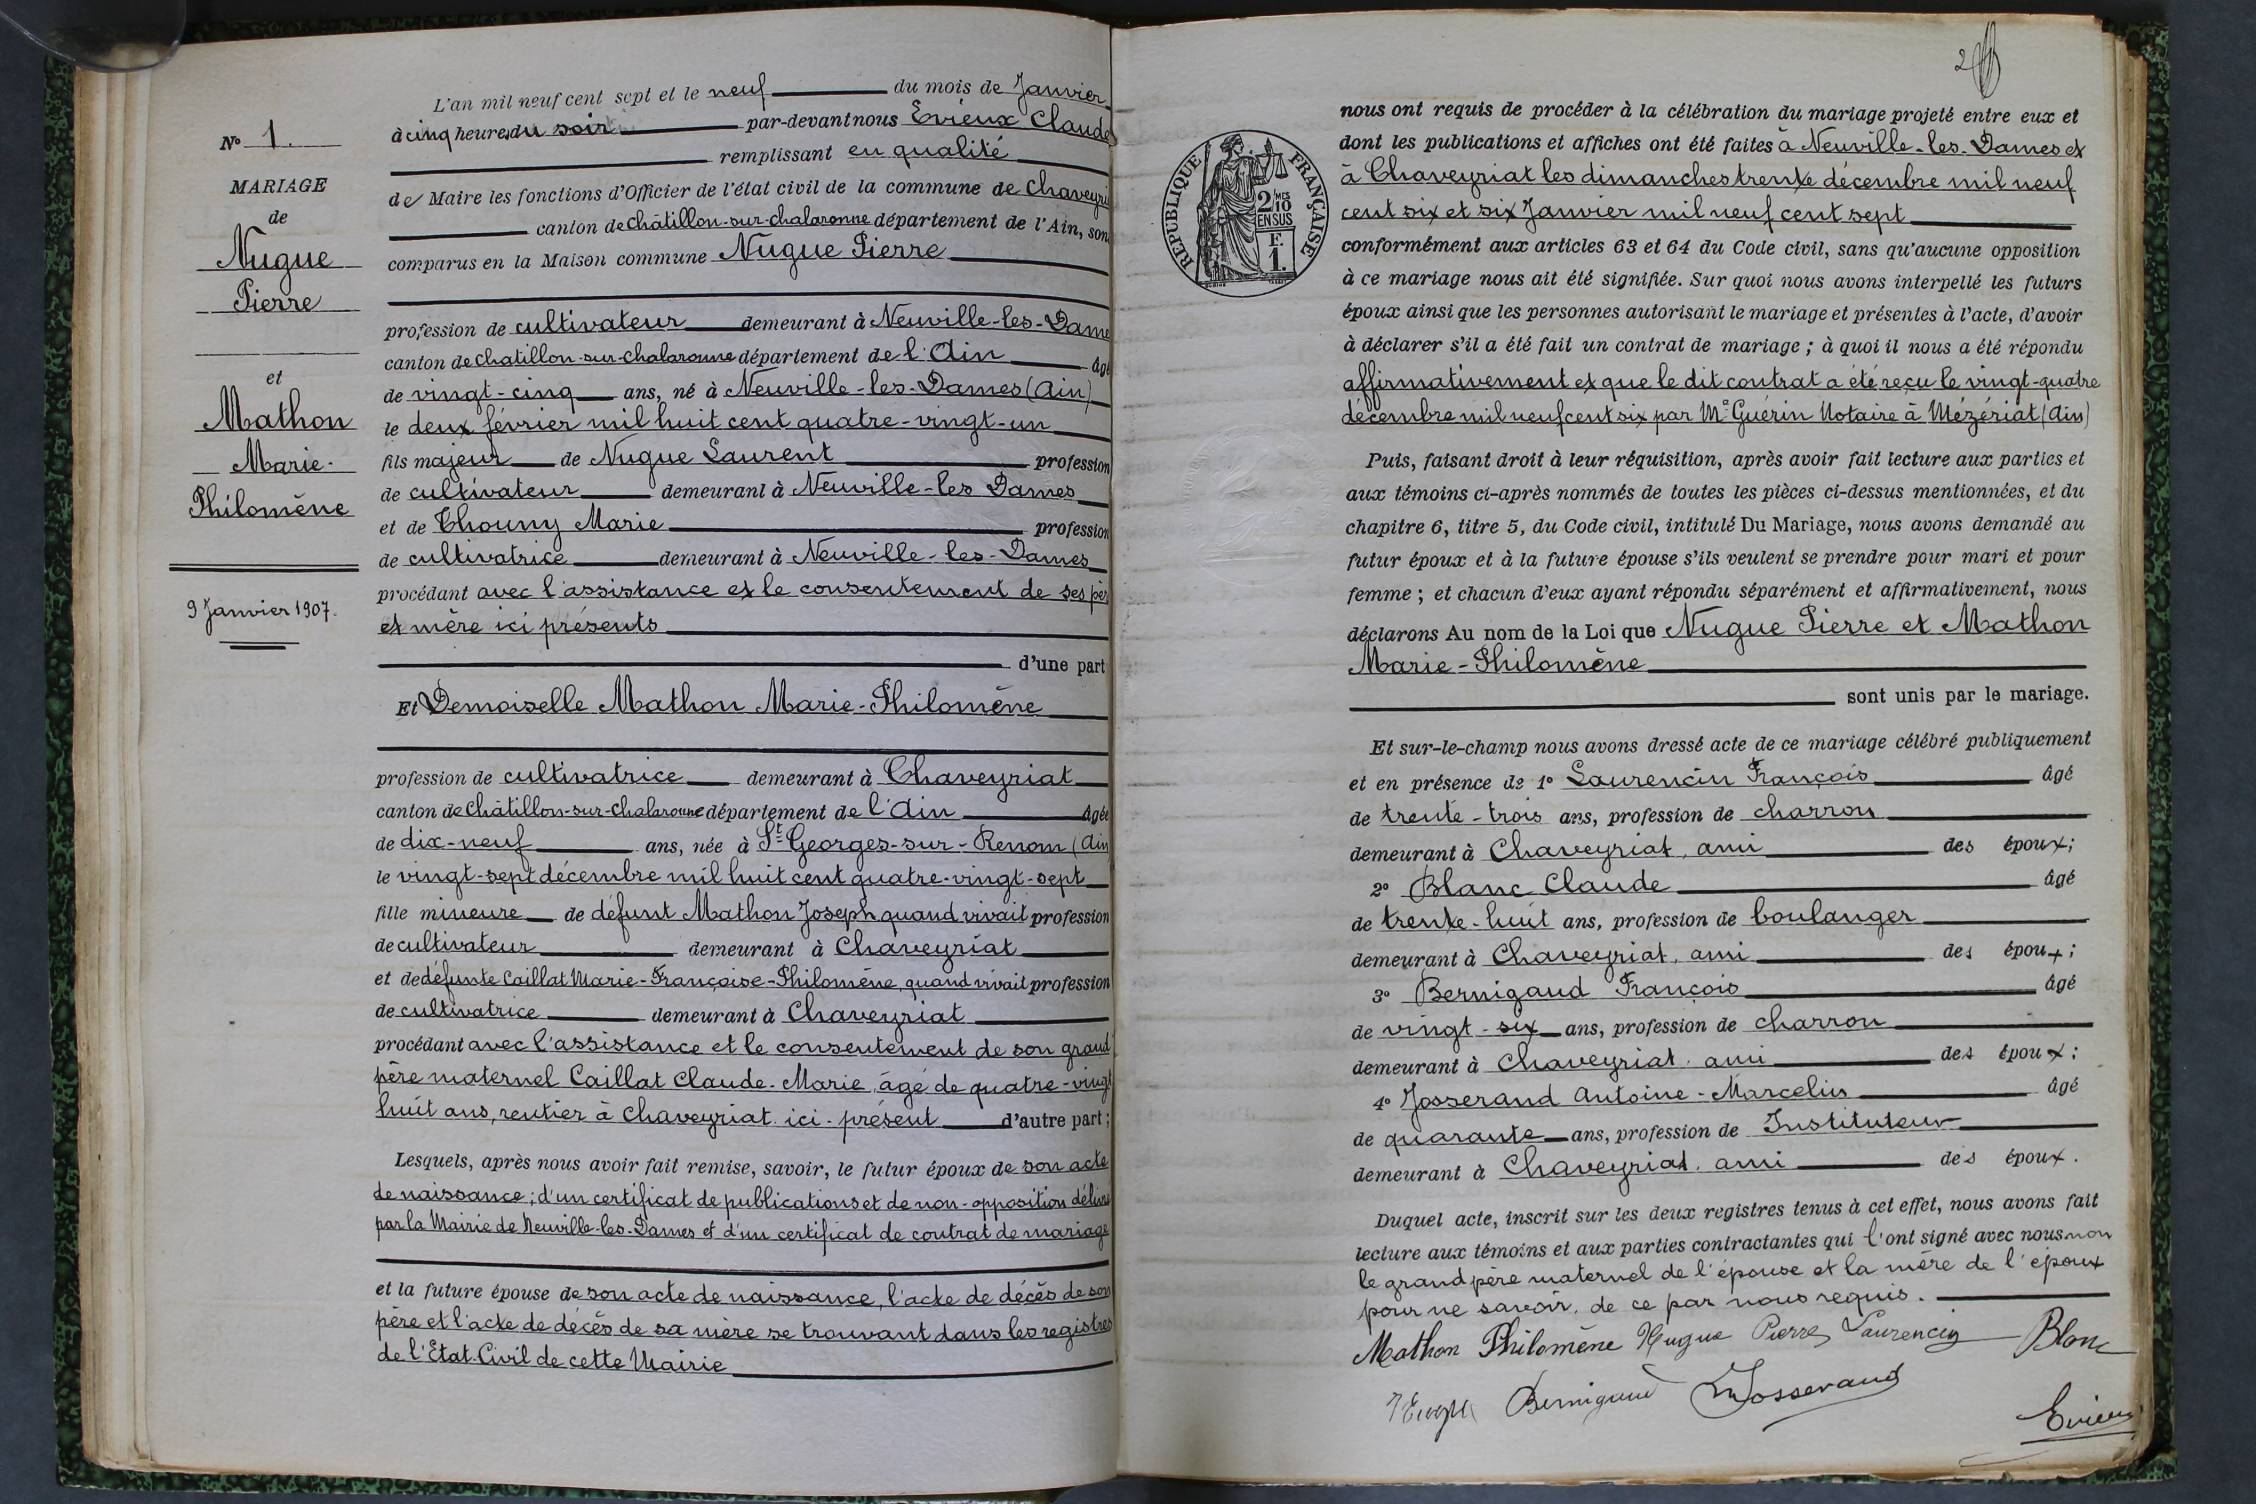 N° 1.
MARIAGE
de
Nugue
Pierre
et
Mathon
Marie-
Philomène
9 Janvier 1907.
L'an mil neuf cent sept et le neuf du mois de Janvier
à cinq heures du soir par-devant nous Evieux Claude
remplissant en qualité
de Maire les fonctions d'Officier de l'état civil de la commune de Chaveyri
canton de Châtillon-sur-chalaronne département de l'Ain, son
comparus en la Maison commune Nugue Pierre
profession de cultivateur demeurant à Neuville-les-Dame
canton de Chatillon-sur-chalaronne département de l'Ain âgé
de vingt-cinq ans, né à Neuville-les-Dames (Ain)
le deux février mil huit cent quatre-vingt-un
fils majeur de Nugue Laurent profession
de cultivateur demeurant à Neuville-les Dames
et de Thouny Marie profession
de cultivatrice demeurant à Neuville-les-Dames
procédant avec l'assistance et le consentement de ses pèr
et mère ici présents
d'une part
Et Demoiselle Mathon Marie-Philomène
profession de cultivatrice demeurant à Chaveyriat
canton de Châtillon-sur-Chalaronne département de l'Ain âgée
de dix-neuf ans, née à St Georges-sur-Renom (Ain
le vingt-sept décembre mil huit cent quatre-vingt-sept
fille mineure de défunt Mathon Joseph, quand vivait profession
de cultivateur demeurant à Chaveyriat
et de défunte Caillat Marie-Françoise-Philomène, quand vivait profession
de cultivatrice demeurant à Chaveyriat
procédant avec l'assistance et le consentement de son grand
père maternel Caillat Claude-Marie, âgé de quatre-vingt
huit ans, rentier à Chaveyriat ici-présent d'autre part ;
Lesquels, après nous avoir fait remise, savoir, le futur époux de son acte
de naissance ; d'un certificat de publications et de non-opposition délivré
par la Mairie de Neuville-les-Dames et d'un certificat de contrat de mariage
et la future épouse de son acte de naissance, l'acte de décès de son
père et l'acte de décès de sa mère se trouvant dans les registres
de l'Etat-Civil de cette Mairie
2
RÉPUBLIQUE FRANÇAISE
2/10 MES
EN SUS
F.
1.
nous ont requis de procéder à la célébration du mariage projeté entre eux et
dont les publications et affiches ont été faites à Neuville-les-Dames et
à Chaveyriat les dimanches trente décembre mil neuf
cent six et six Janvier mil neuf cent sept
conformément aux articles 63 et 64 du Code civil, sans qu'aucune opposition
à ce mariage nous ait été signifiée. Sur quoi nous avons interpellé les futurs
époux ainsi que les personnes autorisant le mariage et présentes à l'acte, d'avoir
à déclarer s'il a été fait un contrat de mariage ; à quoi il nous a été répondu
affirmativement et que le dit contrat a été reçu le vingt-quatre
décembre mil neuf cent six par Me Guérin Notaire à Mézériat (Ain)
Puis, faisant droit à leur réquisition, après avoir fait lecture aux parties et
aux témoins ci-après nommés de toutes les pièces ci-dessus mentionnées, et du
chapitre 6, titre 5, du Code civil, intitulé Du Mariage, nous avons demandé au
futur époux et à la future épouse s'ils veulent se prendre pour mari et pour
femme ; et chacun d'eux ayant répondu séparément et affirmativement, nous
déclarons Au nom de la Loi que Nugue Pierre et Mathon
Marie-Philomène
sont unis par le mariage.
Et sur-le-champ nous avons dressé acte de ce mariage célébré publiquement
et en présence de 1° Laurencin François âgé
de trente-trois ans, profession de charron
demeurant à Chaveyriat, ami des époux ;
2° Blanc Claude âgé
de trente-huit ans, profession de boulanger
demeurant à Chaveyriat, ami des époux ;
3° Bernigaud François âgé
de vingt-six ans, profession de charron
demeurant à Chaveyriat, ami des époux ;
4° Josserand Antoine-Marcelin âgé
de quarante ans, profession de Instituteur
demeurant à Chaveyriat, ami des époux.
Duquel acte, inscrit sur les deux registres tenus à cet effet, nous avons fait
lecture aux témoins et aux parties contractantes qui l'ont signé avec nous non
le grand père maternel de l'épouse et la mère de l'époux
pour ne savoir, de ce par nous requis.
Mathon Philomène Nugue Pierre Laurencin Blanc
Bernigaud Josserand
Evieux